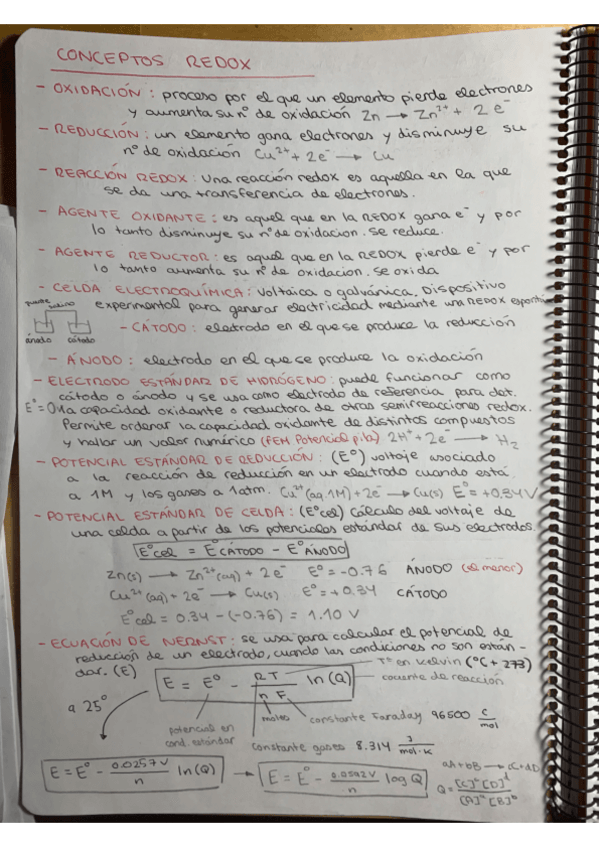 CONCEPTOS REDOX
- OXIDACIÓN: proceso por el que un elemento pierde electrones
y aumenta su nº de oxidación Zn → Zn²⁺ + 2 e⁻
- REDUCCIÓN: un elemento gana electrones y disminuye su
nº de oxidación Cu²⁺ + 2e⁻ → Cu
- REACCIÓN REDOX: Una reacción redox es aquella en la que
se da una transferencia de electrones.
- AGENTE OXIDANTE: es aquel que en la REDOX gana e⁻ y por
lo tanto disminuye su nº de oxidacion. Se reduce.
- AGENTE REDUCTOR: es aquel que en la REDOX pierde e⁻ y por
lo tanto aumenta su nº de oxidacion. Se oxida
- CELDA ELECTROQUÍMICA: Voltaica o galvánica. Dispositivo
experimental para generar electricidad mediante una REDOX
puente salino
ánodo cátodo
- CÁTODO: electrodo en el que se produce la reducción
- ÁNODO: electrodo en el que se produce la oxidación
- ELECTRODO ESTÁNDAR DE HIDRÓGENO: puede funcionar como
cátodo o ánodo y se usa como electrodo de referencia para det.
E° = 0 la capacidad oxidante o reductora de otras semirreacciones redox.
Permite ordenar la capacidad oxidante de distintos compuestos
y hallar un valor numérico (FEM Potencial pila) 2H⁺ + 2e⁻ → H₂
- POTENCIAL ESTÁNDAR DE REDUCCIÓN: (E°) voltaje asociado
a la reacción de reducción en un electrodo cuando está
a 1M y los gases a 1atm. Cu²⁺(aq, 1M) + 2e⁻ → Cu(s) E° = +0.34V
- POTENCIAL ESTÁNDAR DE CELDA: (E°cel) Cálculo del voltaje de
una celda a partir de los potenciales estándar de sus electrodos.
E°cel = E°CÁTODO - E°ÁNODO
Zn(s) → Zn²⁺(aq) + 2 e⁻ E° = -0.76 ÁNODO (el menor)
Cu²⁺(aq) + 2e⁻ → Cu(s) E° = +0.34 CÁTODO
E°cel = 0.34 - (-0.76) = 1.10 V
- ECUACIÓN DE NERNST: se usa para calcular el potencial de
reducción de un electrodo, cuando las condiciones no son están-
dar. (E)
Tª en Kelvin (°C + 273)
E = E° - RT / nF ln(Q)
cociente de reacción
a 25°
potencial en cond. estándar
moles
constante Faraday 96500 C/mol
constante gases 8.314 J/mol·K
E = E° - 0.0257V / n ln(Q) → E = E° - 0.0592V / n log Q
aA + bB → cC + dD
Q = [C]ᶜ[D]ᵈ / [A]ᵃ[B]ᵇ